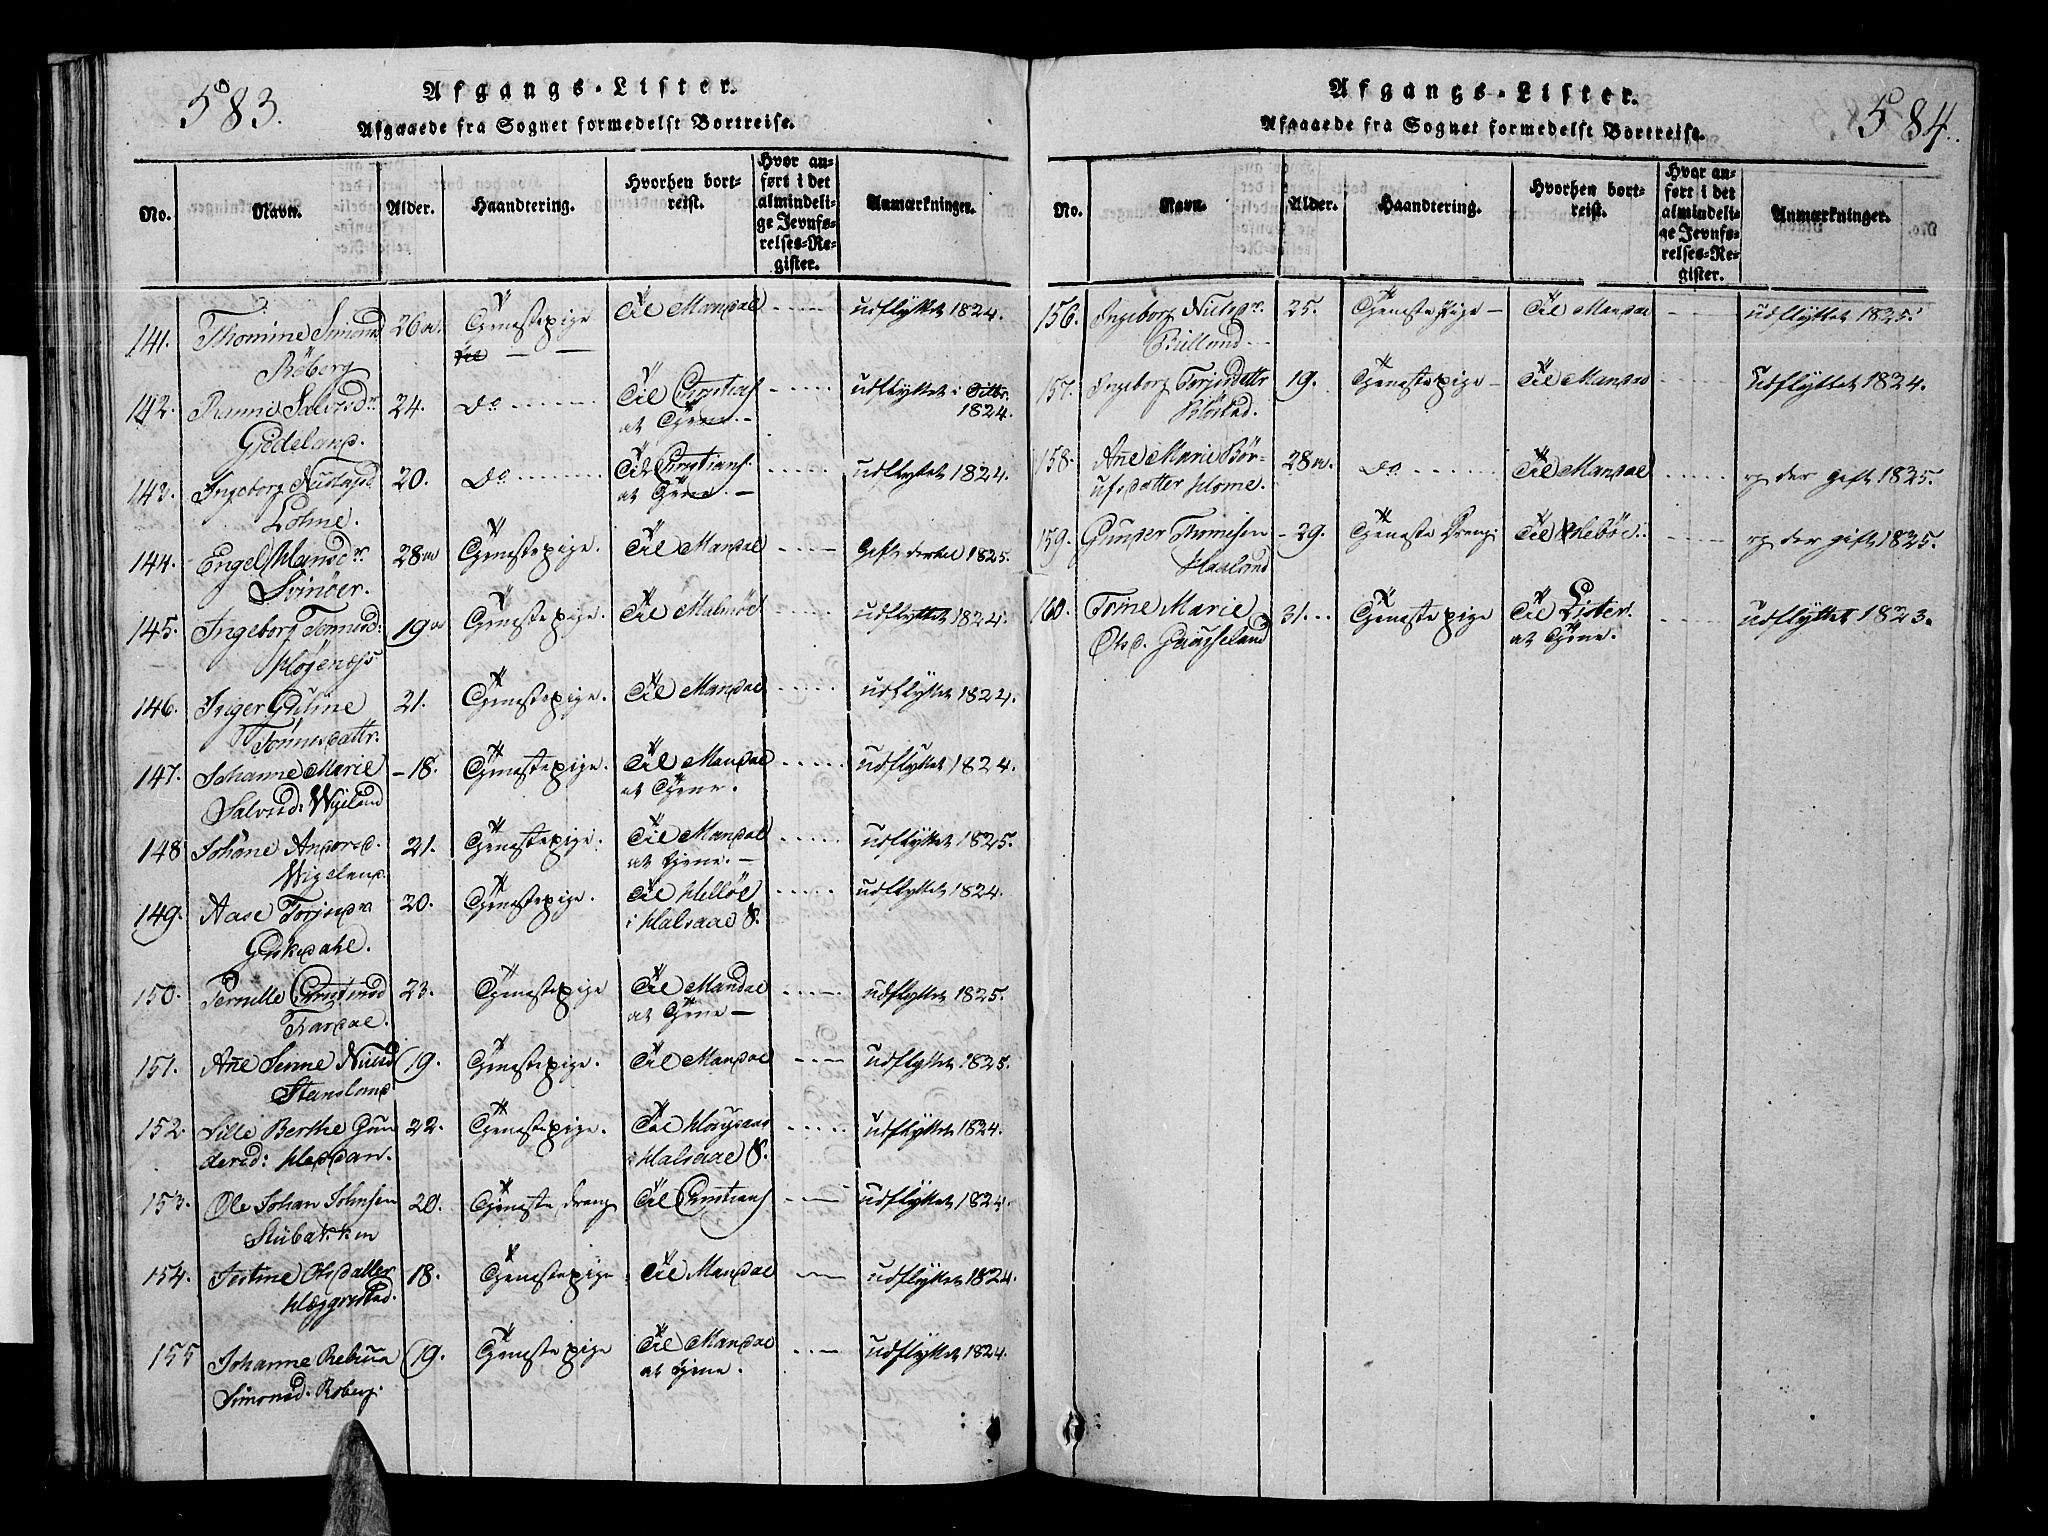 583.
Afgangs-Lister.
Afgaaede fra Sognet formedelst Bortreise.
No. Navn. Alder. Haandtering. Hvorhen bortreist. Hvor anført i det almindelige Jevnførelses-Register. Anmærkninger.
141. Thomine Simond 26 Tjenestepige Til Mandal udflyttet 1824.
Röberg
142. Salvesdr 24. Do Til Christians udflyttet i
Gideland. at Tjene. 1824.
143. Ingeborg 20. Do Til Christians. udflyttet 1824.
Lohne. at Tjene.
144. Engel Hansdr 28 Tjenestepige. Til Mandal Gift dertil 1825.
Svinöer.
145. Ingeborg Tönnesd: 19 Tjenestepige. Til Malmöe udflyttet 1824.
Högenæs
146. Inger Guline 21. Tjenestepige. Til Mandal udflyttet 1824.
Tönnesdattr.
147. Johanne Marie 18. Tjenestepige. Til Mandal udflyttet 1824.
Salvesd: Wigeland at Tjene.
148 Johanne Andersd. 21. Tjenestepige. Til Mandal udflyttet 1825.
Wigeland. at tjene.
149. Aase Torjusdr 20. Tjenestepige. Til udflyttet 1824.
Giskedahl. i Halsaae S.
150. Pernille Christensd 23. Tjenestepige Til Mandal udflyttet 1825.
Tardal. at Tjene
151. Ane Nielsd 19. Tjenestepige. Til Mandal udflyttet 1825.
Stensland
152. Sille Berthe Gun 22. Tjenestepige. Til udflyttet 1824.
dersd: Heddan. i Halsaae S.
153. Ole Johan Johnsen 20. Tjeneste dreng Til Christians udflyttet 1824.
Stubakken
154. Olsdatter 18. Tjenestepige Til Mandal udflyttet 1824.
Hæggestad.
155 Johanne 19. Tjenestepige Til Mandal udflyttet 1824.
Simonsd: Roberg. at tjene.
584.
Afgangs-Lister.
Afgaaede fra Sognet formedelst Bortreise.
No. Navn. Alder. Haandtering. Hvorhen bortreist. Hvor anført i det almindelige Jevnførelses-Register. Anmærkninger.
156. Ingeborg Nielsdr. 25. Tjeneste Pige Til Mandal udflyttet 1825.
157. Ingeborg Torjusdattr 19. Tjenestepige Til Mandal Udflyttet 1824.
158. Ane Marie Bör- 28 Do Til Mandal og der gift 1825.
ufsdatter Home.
159. Gunder Thomesen 29. Tjeneste Dreng Til og der gift 1825.
Haaland
160. Torne Marie 31. Tjenestepige Til Lister. udflyttet 1823.
Olsd. at tjene.